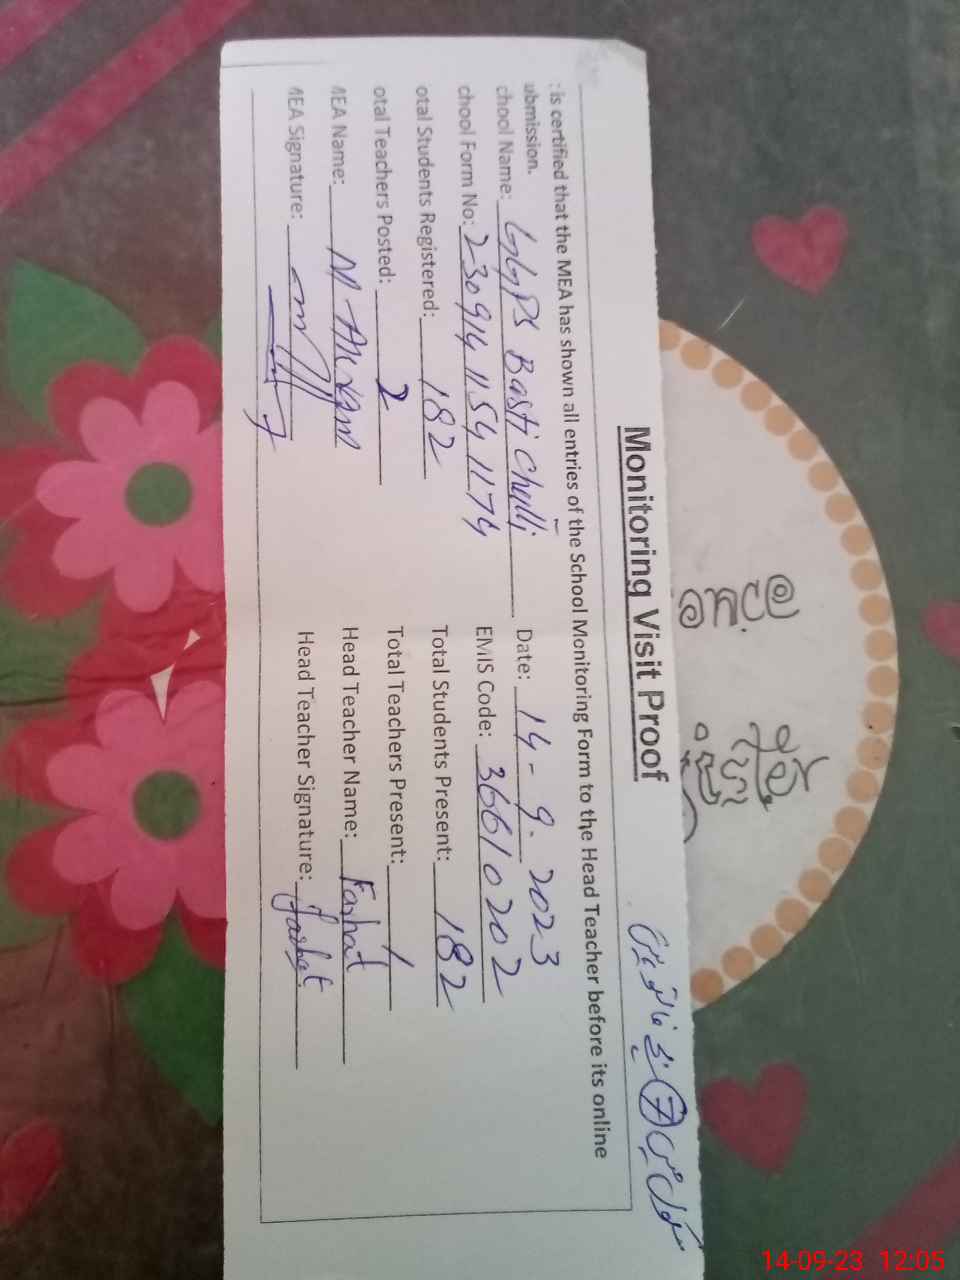 سکول میں 7 بچے فالتو ہیں
Monitoring Visit Proof
: is certified that the MEA has shown all entries of the School Monitoring Form to the Head Teacher before its online
ubmission.
chool Name: GGPS Basti Chulli Date: 14-9-2023
chool Form No: 23091411541174 EMIS Code: 36610202
otal Students Registered: 182 Total Students Present: 182
otal Teachers Posted: 2 Total Teachers Present: 1
MEA Name: M Ahxam Head Teacher Name: Farhat
MEA Signature: Head Teacher Signature: Farhat
14-09-23 12:05